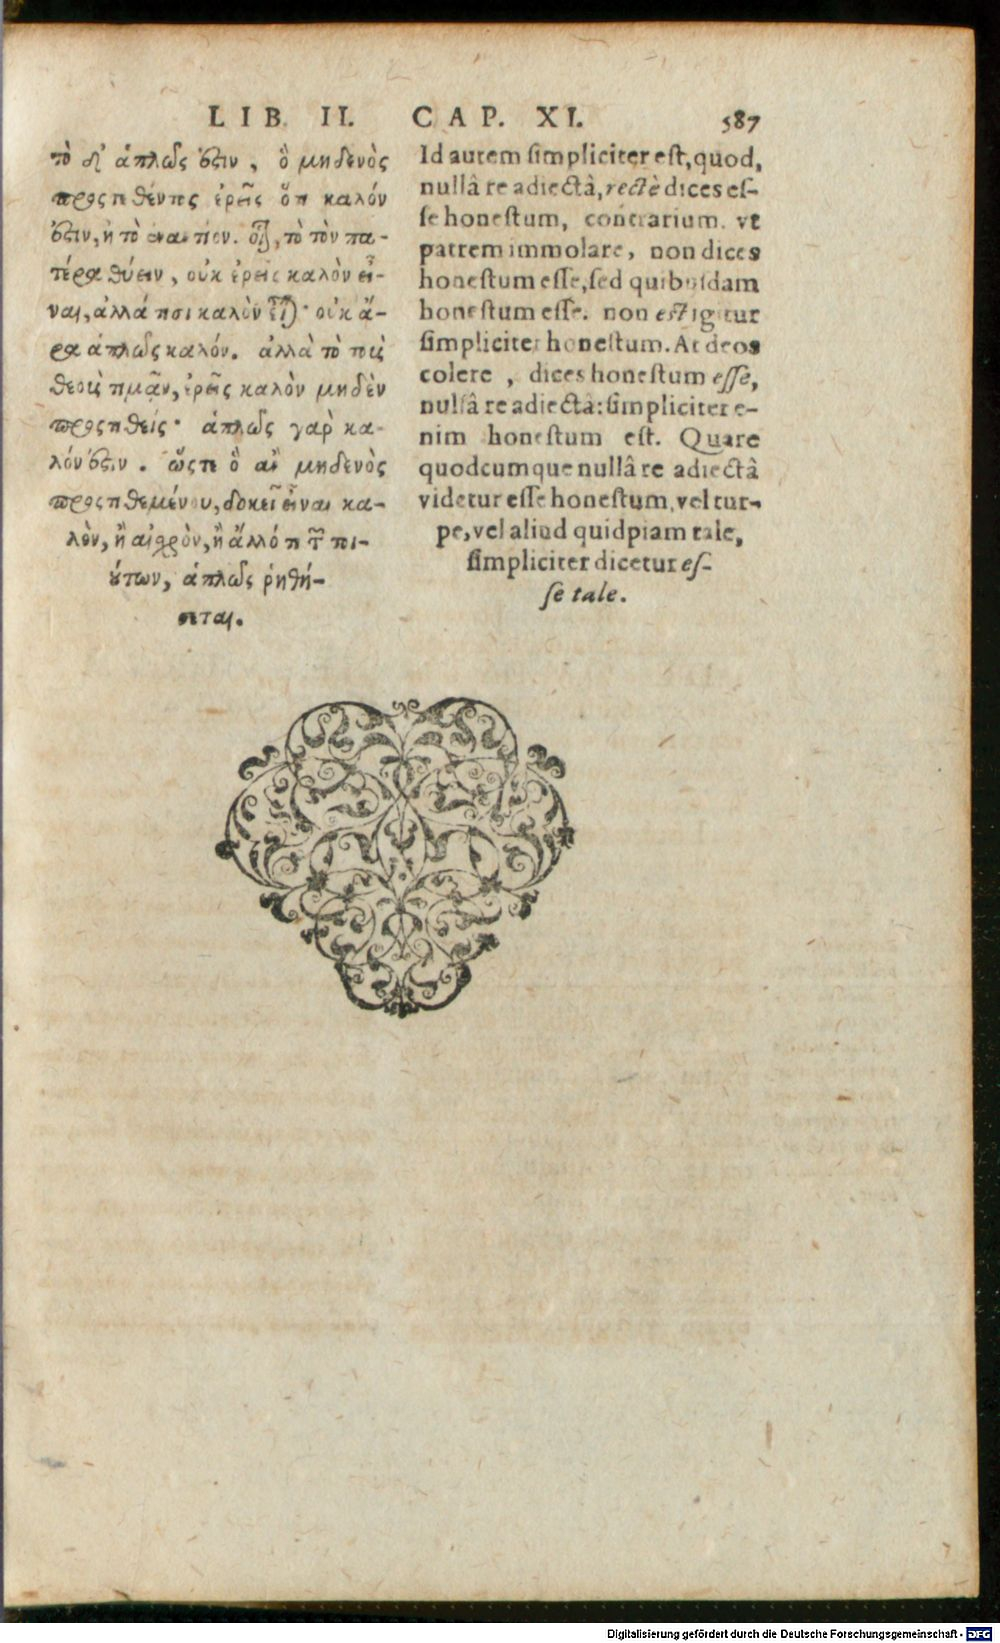 LIB. II. CAP. XI. 587
τὸ δ' ἁπλῶς ἐστιν, ὃ μηδενὸς
προςτιθέντος ἐρεῖς ὅτι καλόν
ἐστιν, ἢ τὸ ἐναντίον. οἷον, τὸ τὸν πα-
τέρα θύειν, οὐκ ἐρεῖς καλὸν εἶ-
ναι, ἀλλά τισι καλὸν εἶναι· οὐκ ἄ-
ρα ἁπλῶς καλόν. ἀλλὰ τὸ τοὺς
θεοὺς τιμᾶν, ἐρεῖς καλὸν μηδὲν
προςτιθείς· ἁπλῶς γὰρ κα-
λόν ἐστιν. ὥςτε ὃ ἂν μηδενὸς
προςτιθεμένου, δοκεῖ εἶναι κα-
λὸν, ἢ αἰσχρὸν, ἢ ἄλλό τι τῶν τοι-
ούτων, ἁπλῶς ῥηθή-
σεται.
Id autem simpliciter est, quod,
nullâ re adiectâ, rectè dices es-
se honestum, contrarium. vt
patrem immolare, non dices
honestum esse, sed quibusdam
honestum esse. non est igitur
simpliciter honestum. At deos
colere, dices honestum esse,
nullâ re adiectâ: simpliciter e-
nim honestum est. Quare
quodcumque nullâ re adiectâ
videtur esse honestum, vel tur-
pe, vel aliud quidpiam tale,
simpliciter dicetur es-
se tale.
Digitalisierung gefördert durch die Deutsche Forschungsgemeinschaft - DFG